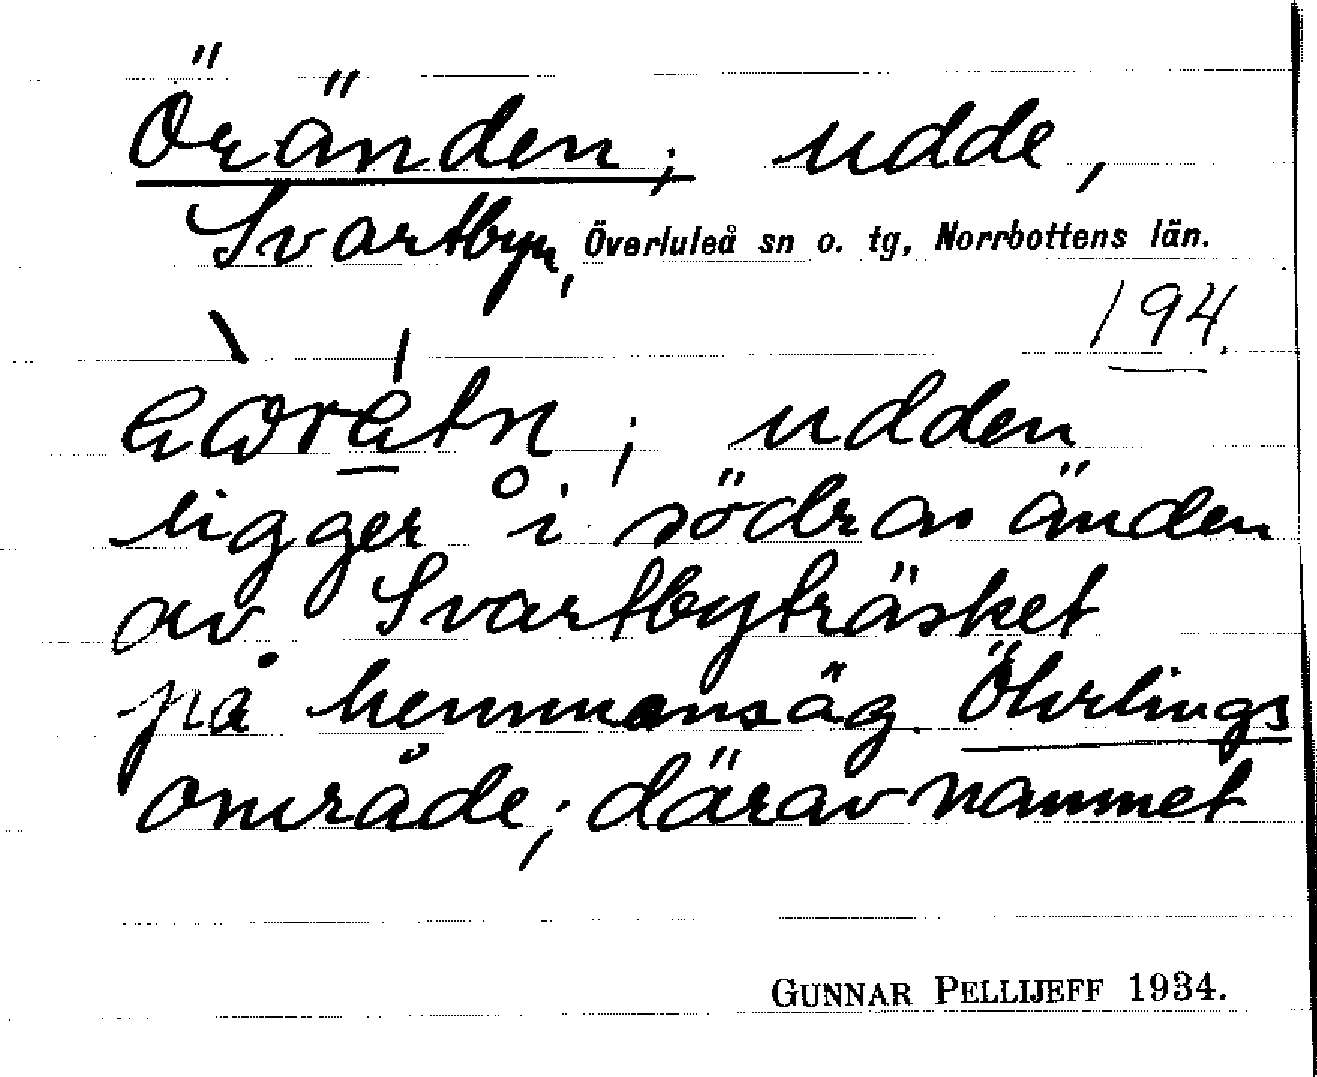 Öränden; udde,
Svartbyn, Överluleå sn o. tg, Norrbottens län.
194.
udden
ligger i södra änden
av Svartbyträsket
på hemmansäg. Öhrlings
område; därav namnet
GUNNAR PELLIJEFF 1934.